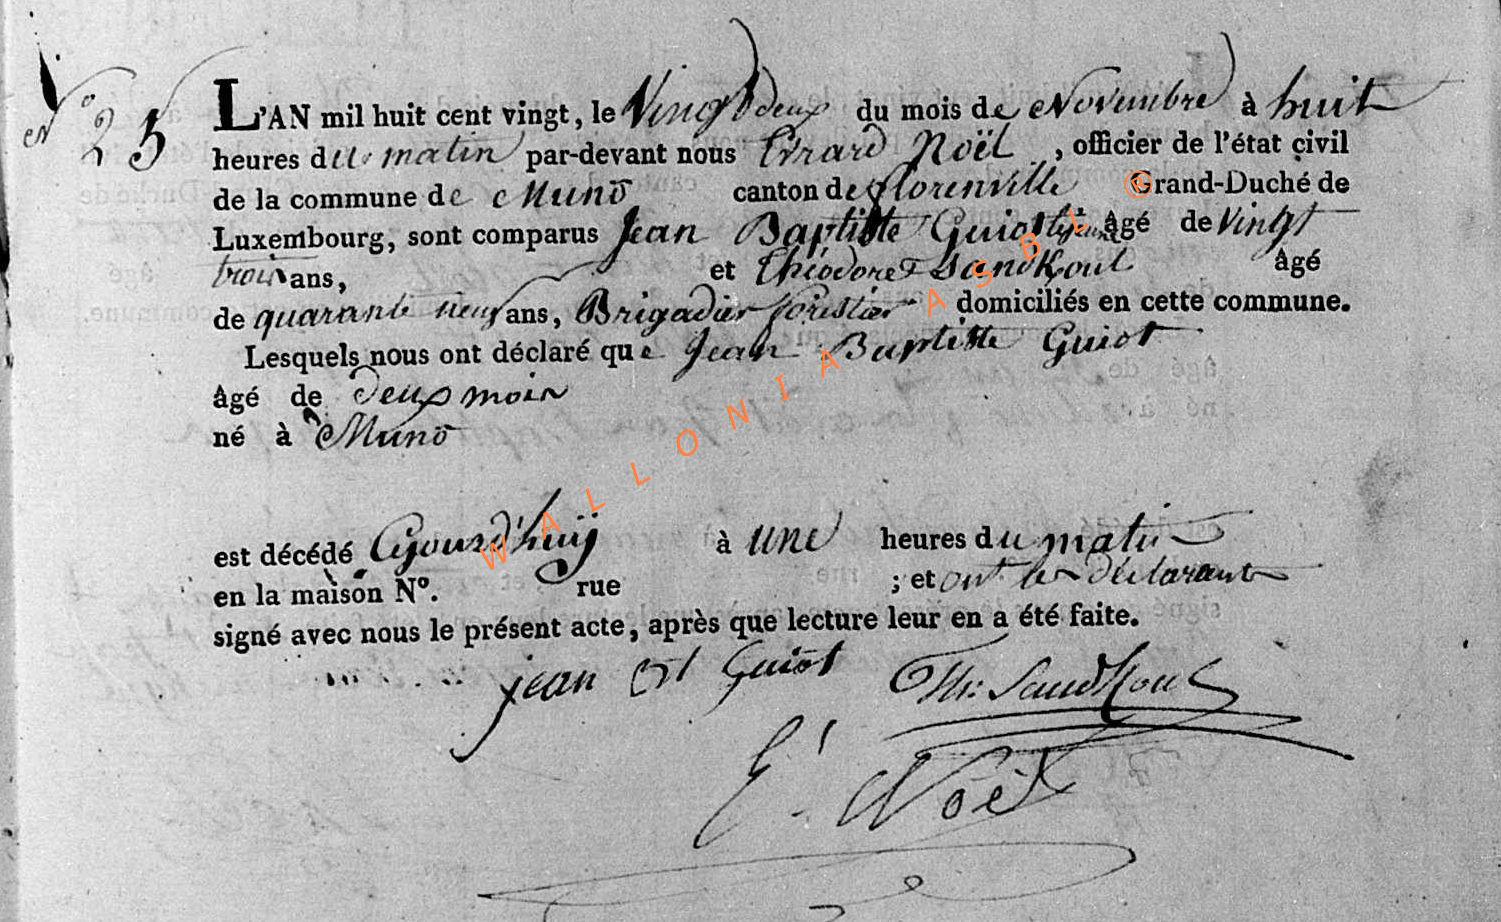 N° 25
L'AN mil huit cent vingt, le Vingt deux du mois de Novembre à huit
heures du matin par-devant nous Evrard Noël, officier de l'état civil
de la commune de Muno canton de florenville Grand-Duché de
Luxembourg, sont comparus Jean Baptiste Guiot âgé de Vingt
trois ans, et théodore Sandkoul âgé
de quarante neuf ans, Brigadier forestier domiciliés en cette commune.
Lesquels nous ont déclaré que Jean Baptiste Guiot
âgé de deux mois
né à Muno
est décédé Cejourd'huÿ à une heures du matin
en la maison N°. rue ; et ont les déclarants
signé avec nous le présent acte, après que lecture leur en a été faite.
jean Bt Guiot Th: Sandkoul
E. Noël
WALLONIA ASBL ©